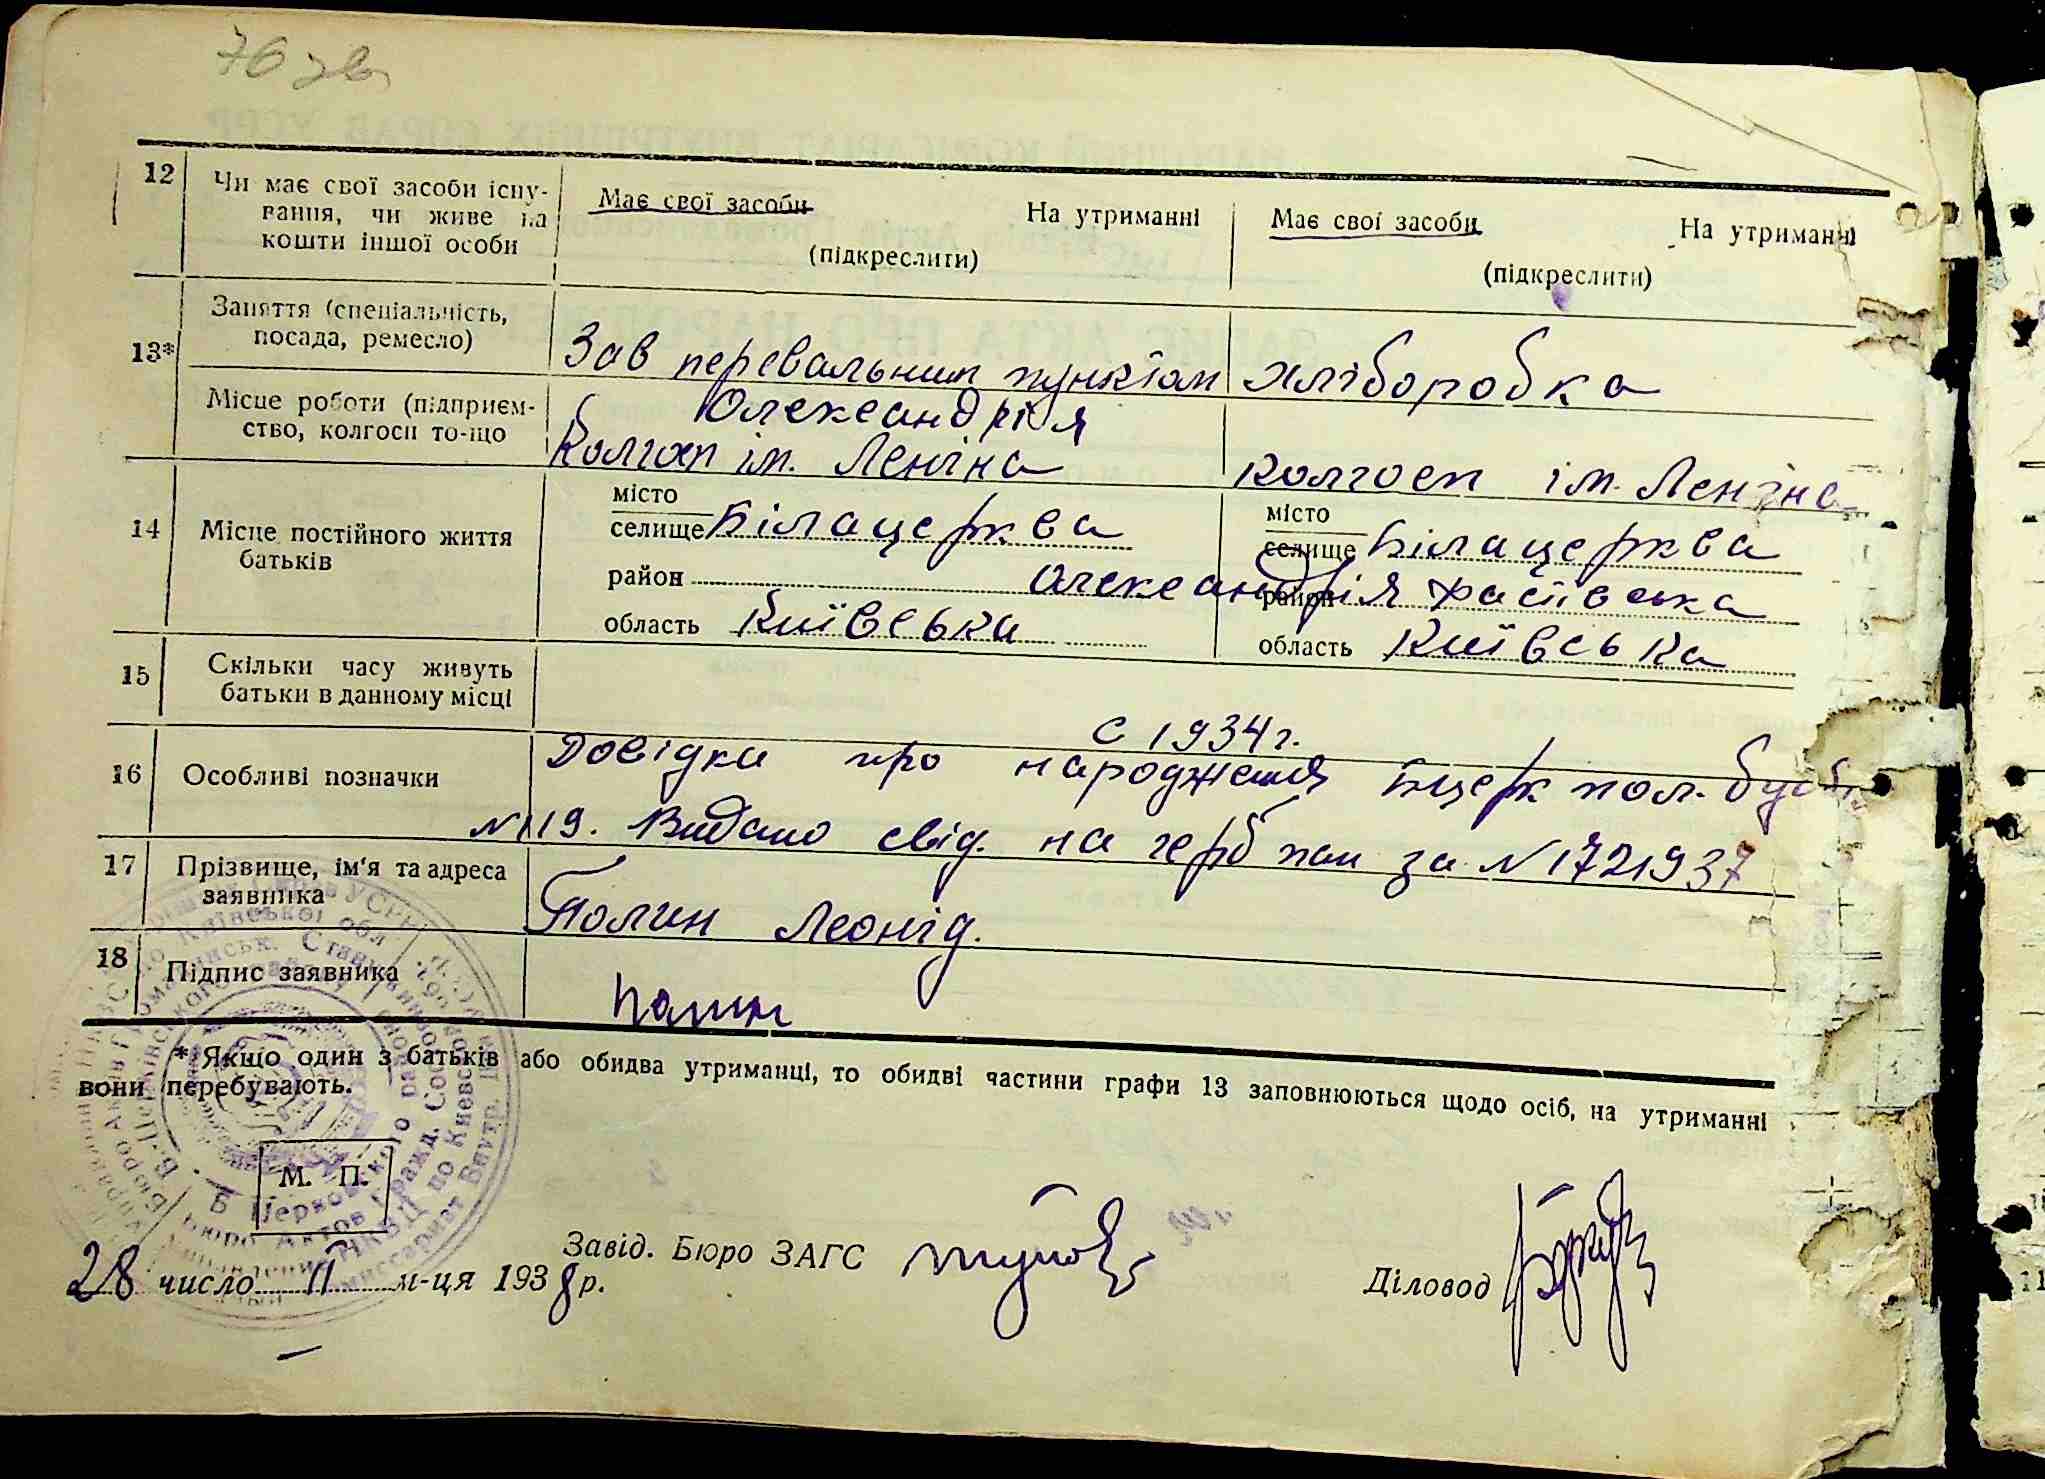 76 зв
12 Чи має свої засоби існу-
вання, чи живе на
кошти іншої особи
Має свої засоби На утриманні
(підкреслити)
Має свої засоби На утриманні
(підкреслити)
13* Заняття (спеціальність,
посада, ремесло)
Зав перевальним пунктом
Олександрія
хліборобка
Місце роботи (підприєм-
ство, колгосп то-що
Колгосп ім. Леніна
Колгосп ім. Леніна
14 Місце постійного життя
батьків
місто
селище Білацерква
район Олександрія
область Київська
місто
селище Білацерква
район Фастівська
область Київська
15 Скільки часу живуть
батьки в данному місці
с 1934 г.
16 Особливі позначки
Довідка про народження Бцерк пол. буд
N 119. Видано свід. на герб пап за N 1721937
17 Прізвище, ім'я та адреса
заявника
Полин Леонід.
18 Підпис заявника
Полин
* Якщо один з батьків або обидва утриманці, то обидві частини графи 13 заповнюються щодо осіб, на утриманні
вони перебувають.
М. П.
28 число II м-ця 1938 р.
Завід. Бюро ЗАГС
Діловод